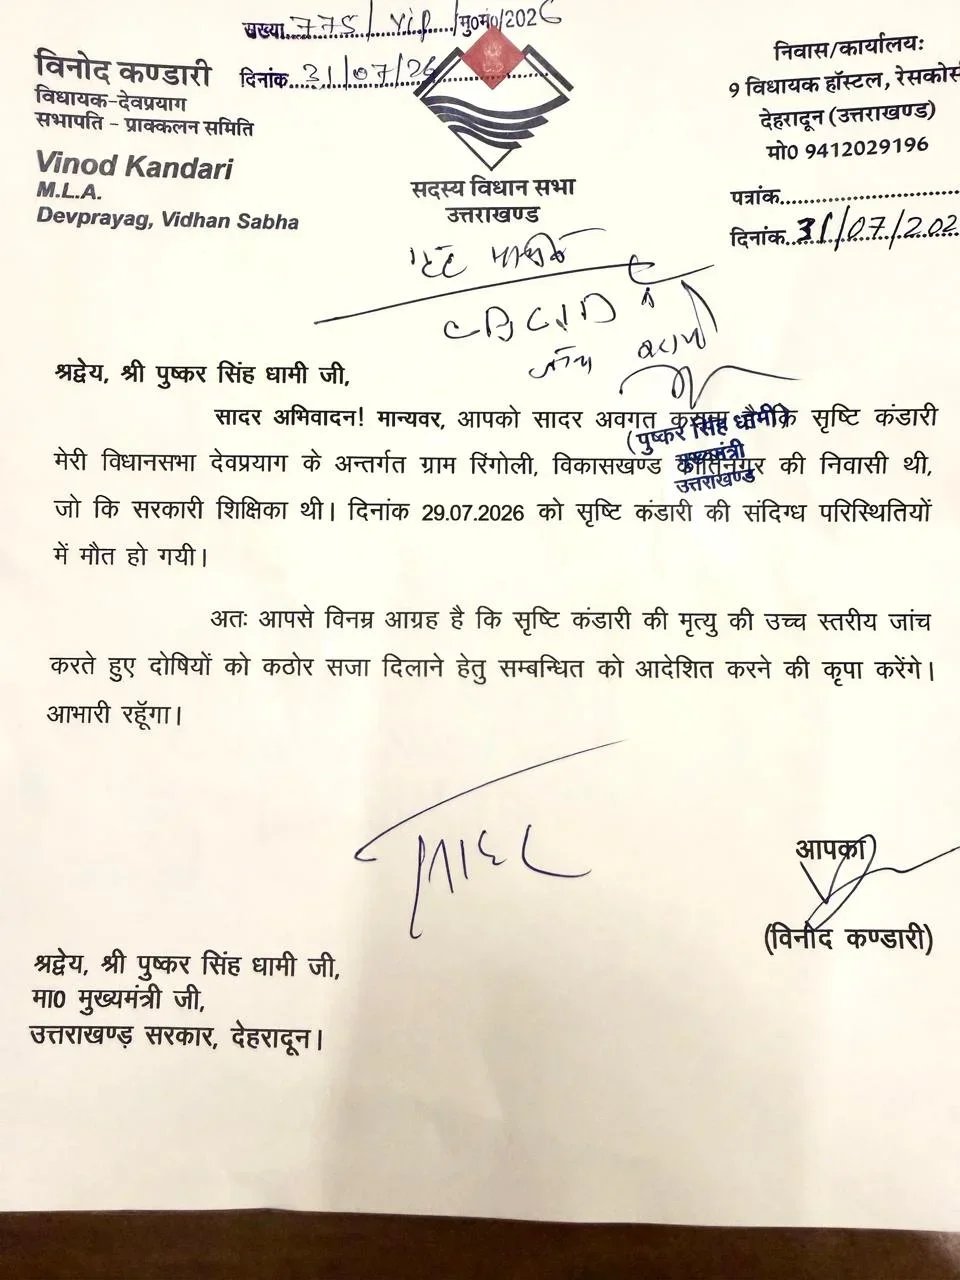 संख्या 775/VIP/मु0मं0/2026
दिनांक 31/07/26
विनोद कण्डारी
विधायक-देवप्रयाग
सभापति - प्राक्कलन समिति
Vinod Kandari
M.L.A.
Devprayag, Vidhan Sabha
सदस्य विधान सभा
उत्तराखण्ड
निवास/कार्यालयः
9 विधायक हॉस्टल, रेसकोर्स
देहरादून (उत्तराखण्ड)
मो0 9412029196
पत्रांक
दिनांक 31/07/202
CBCID से
जाँच कराएं
श्रद्वेय, श्री पुष्कर सिंह धामी जी,
सादर अभिवादन! मान्यवर, आपको सादर अवगत कराना है कि सृष्टि कंडारी
मेरी विधानसभा देवप्रयाग के अन्तर्गत ग्राम रिंगोली, विकासखण्ड कीर्तिनगर की निवासी थी,
जो कि सरकारी शिक्षिका थी। दिनांक 29.07.2026 को सृष्टि कंडारी की संदिग्ध परिस्थितियों
में मौत हो गयी।
(पुष्कर सिंह धामी)
मुख्यमंत्री
उत्तराखण्ड
अतः आपसे विनम्र आग्रह है कि सृष्टि कंडारी की मृत्यु की उच्च स्तरीय जांच
करते हुए दोषियों को कठोर सजा दिलाने हेतु सम्बन्धित को आदेशित करने की कृपा करेंगे।
आभारी रहूॅगा।
आपका
(विनोद कण्डारी)
श्रद्वेय, श्री पुष्कर सिंह धामी जी,
मा0 मुख्यमंत्री जी,
उत्तराखण्ड़ सरकार, देहरादून।